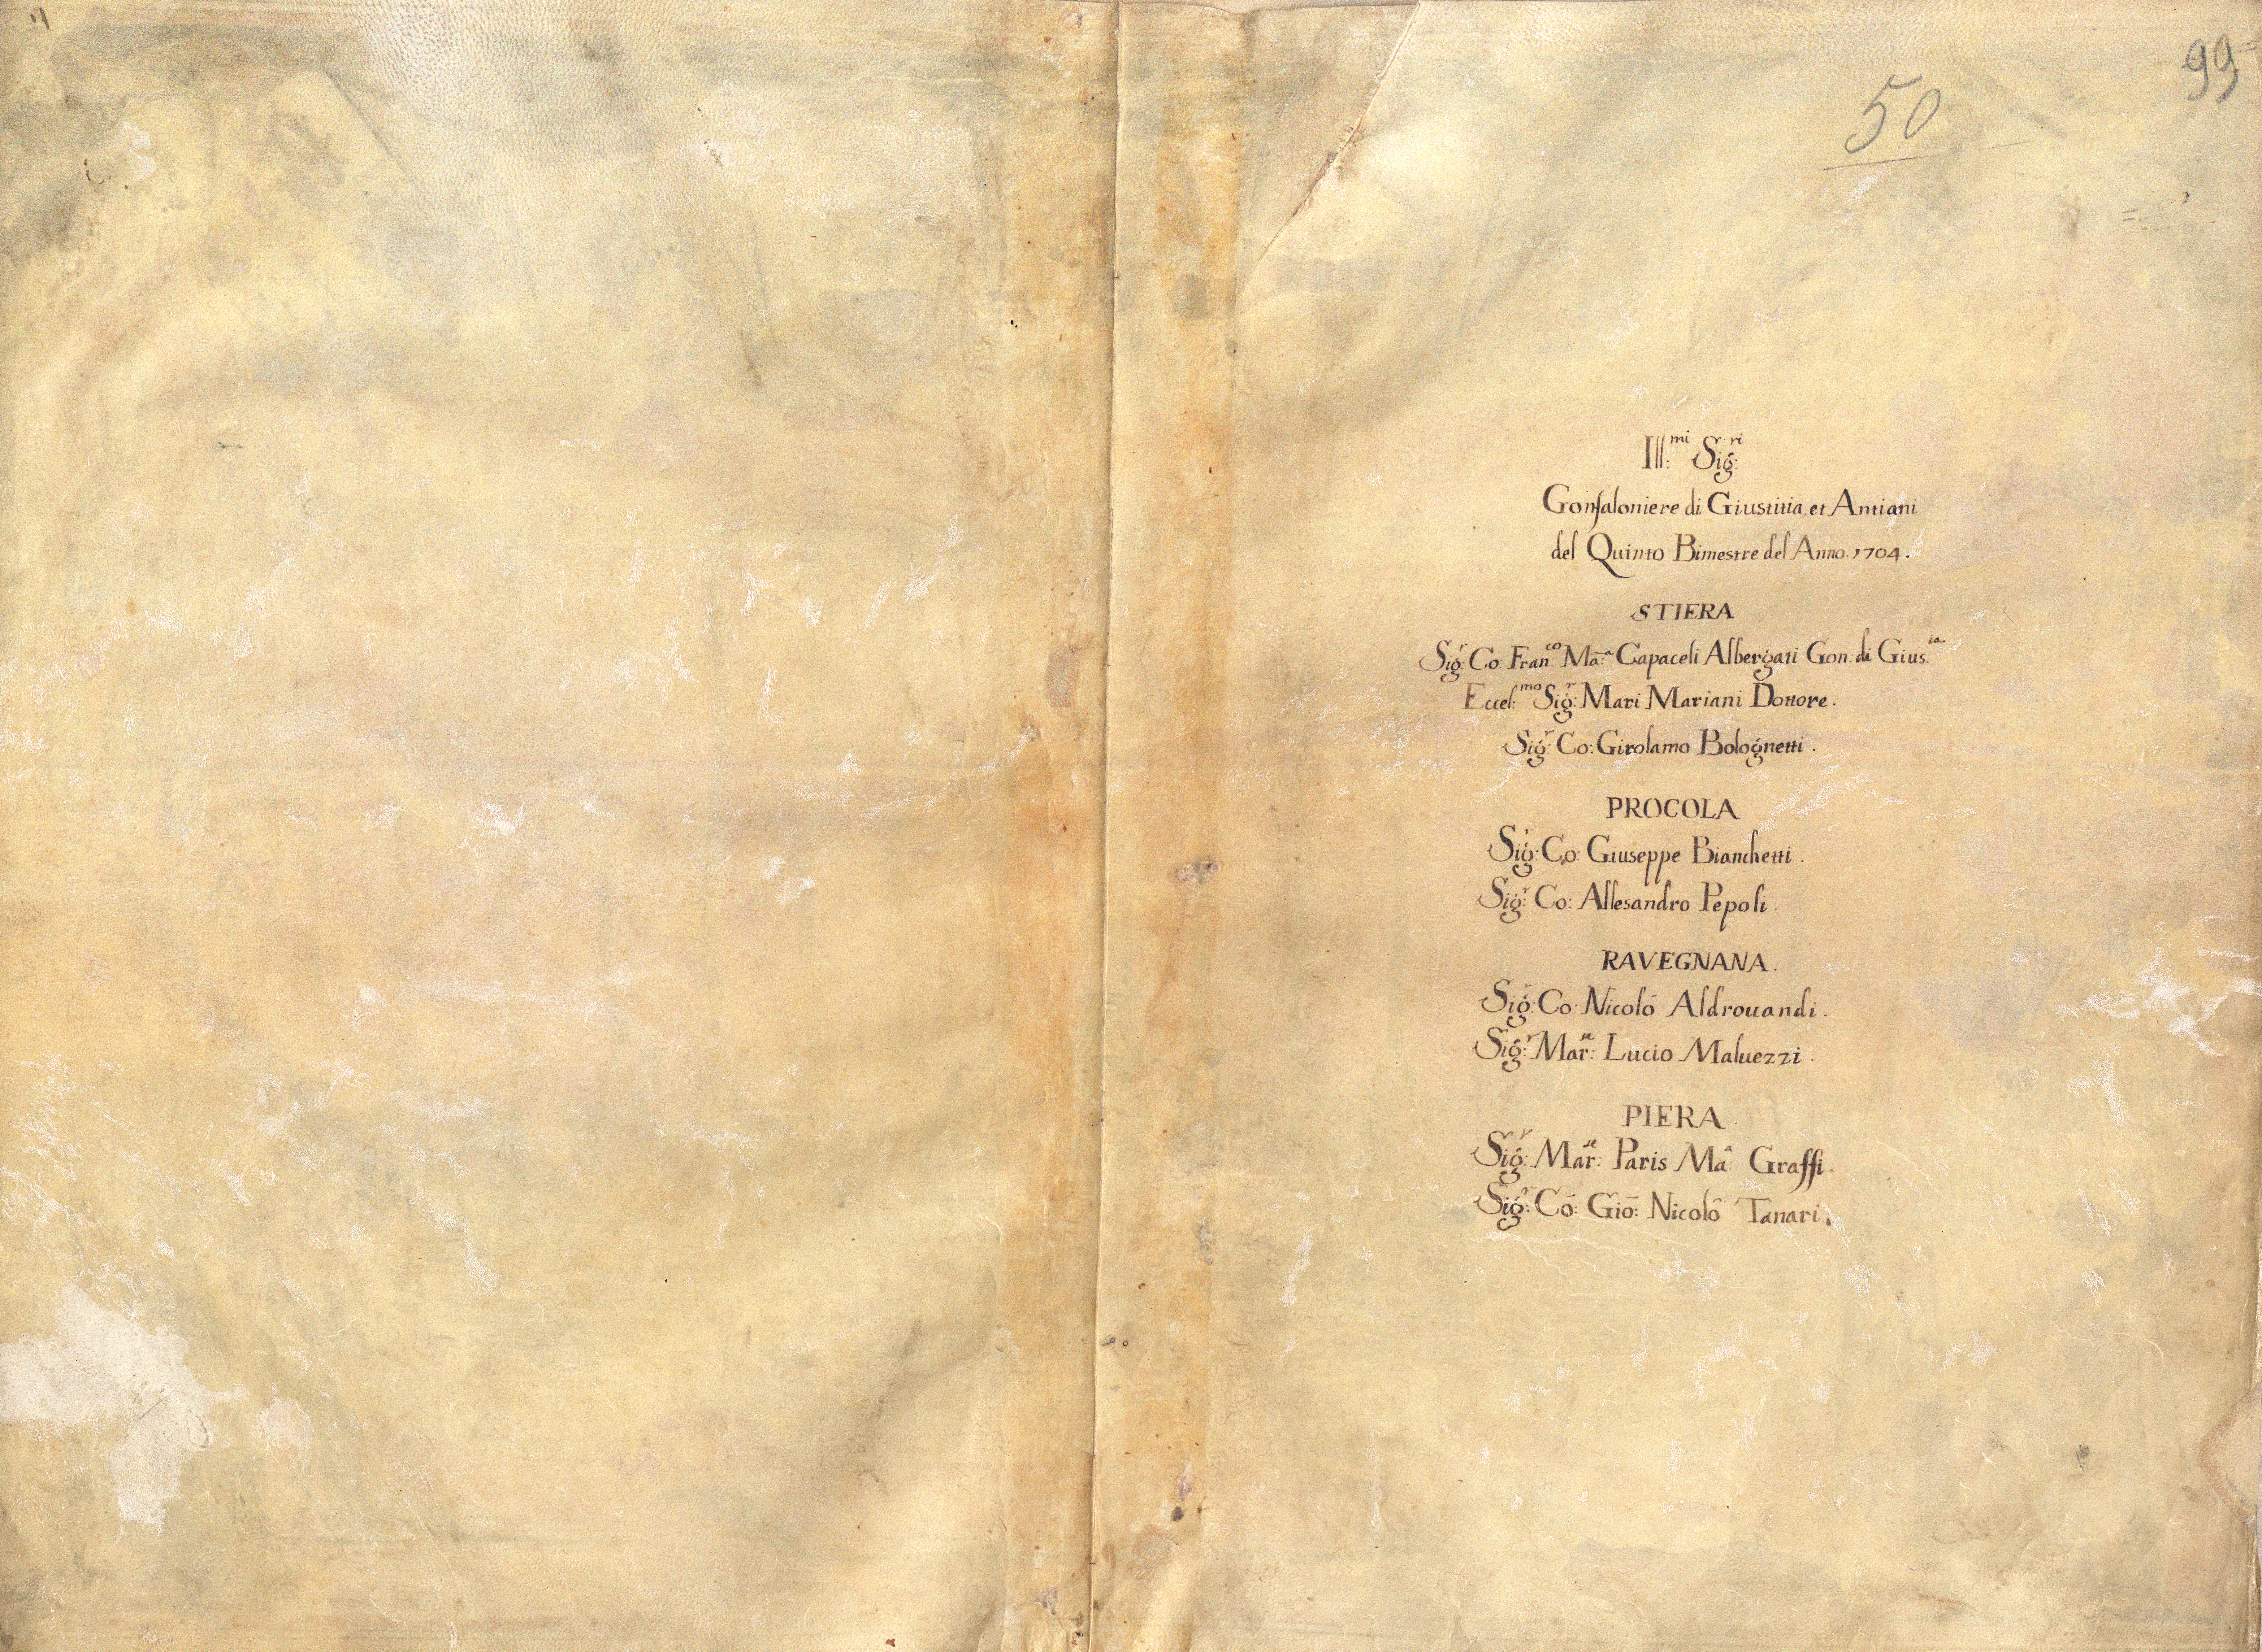 99
50
Ill:mi Sig:ri
Gonfaloniere di Giustitia, et Antiani
del Quinto Bimestre del Anno. 1704.
STIERA
Sig:r Co: Fran:co Ma:a Capaceli Albergati Gon: di Gius.ia
Eccel:mo Sig:r Mari Mariani Dottore.
Sig:r Co: Girolamo Bolognetti.
PROCOLA
Sig:r Co: Giuseppe Bianchetti.
Sig:r Co: Allesandro Pepoli.
RAVEGNANA.
Sig:r Co: Nicolò Aldrouandi.
Sig:r Mar:se Lucio Maluezzi.
PIERA.
Sig:r Mar:se Paris Ma:a Graffi.
Sig:r Co: Gio: Nicolò Tanari.